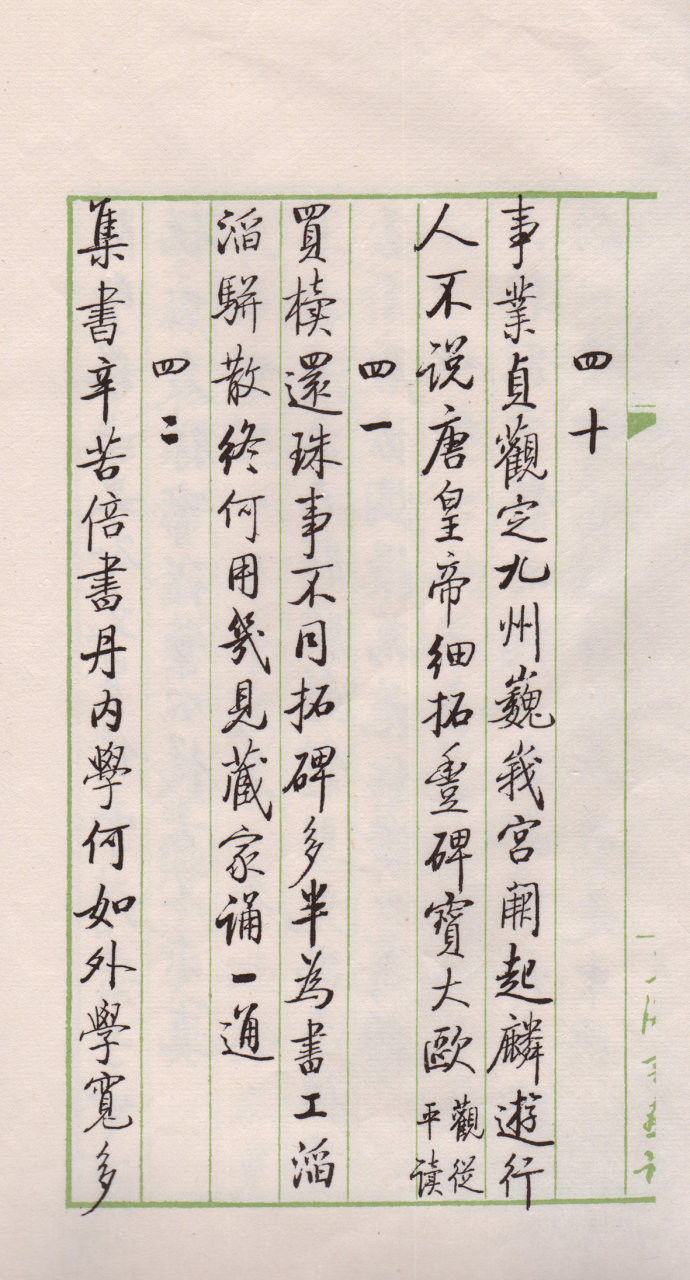 四十
事業貞觀定九州巍峩宮闕起麟遊行
人不说唐皇帝细拓豊碑寳大歐觀從平读
四一
買櫝還珠事不同拓碑多半為書工滔
滔駢散終何用幾見藏家誦一通
四二
集書辛苦倍書丹内學何如外學寬多